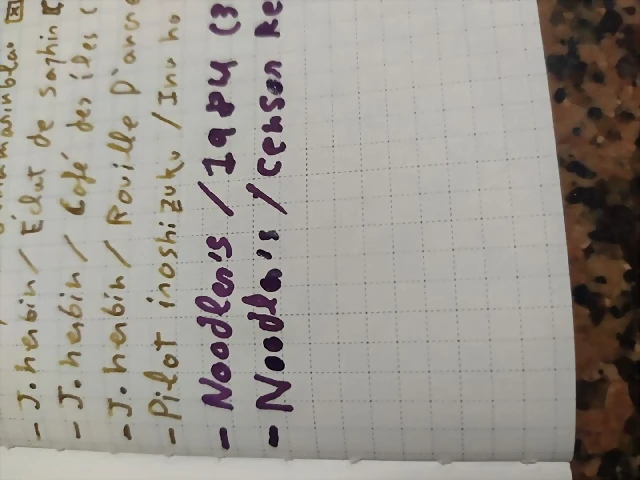 - J. herbin / Éclat de saphir
- J. herbin / Café des îles (
- J. herbin / Rouille D'ancre
- Pilot iroshizuku / Ina ho
- Noodler's / 1984 (3
- Noodler's / Censor Re